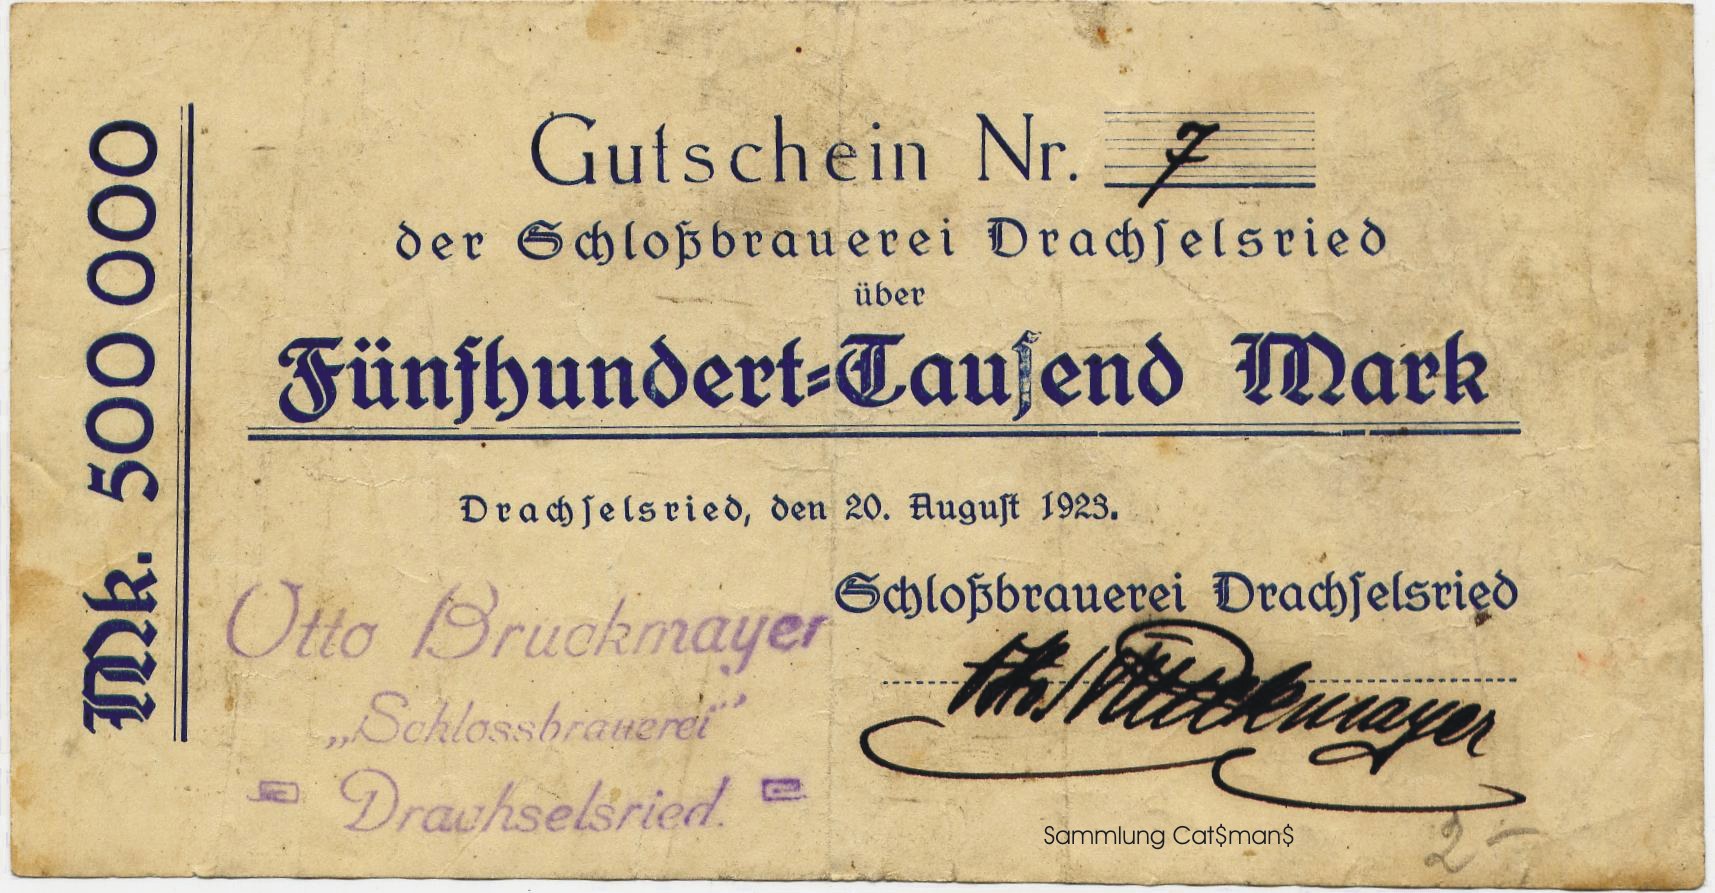 Mk. 500 000
Gutschein Nr. 7
der Schloßbrauerei Drachselsried
über
Fünfhundert=Tausend Mark
Drachselsried, den 20. August 1923.
Schloßbrauerei Drachselsried
Otto Bruckmayer
Otto Bruckmayer
„Schlossbrauerei"
Drachselsried.
Sammlung Cat$man$
2-